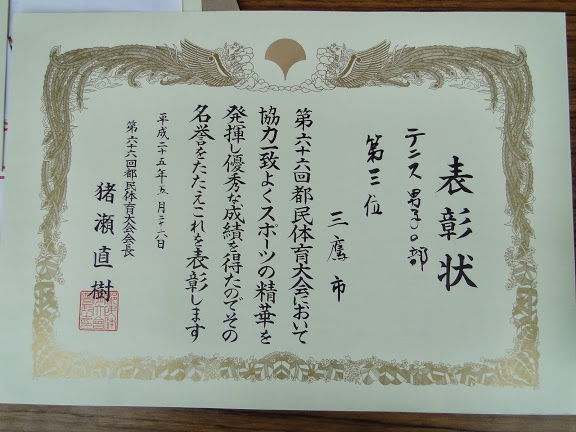 表彰状
テニス 男子の部
第三位
三鷹市
第六十六回都民体育大会において
協力一致よくスポーツの精華を
発揮し優秀な成績を得たのでその
名誉をたたえこれを表彰します
平成二十五年五月二十六日
第六十六回都民体育大会会長
猪瀬直樹